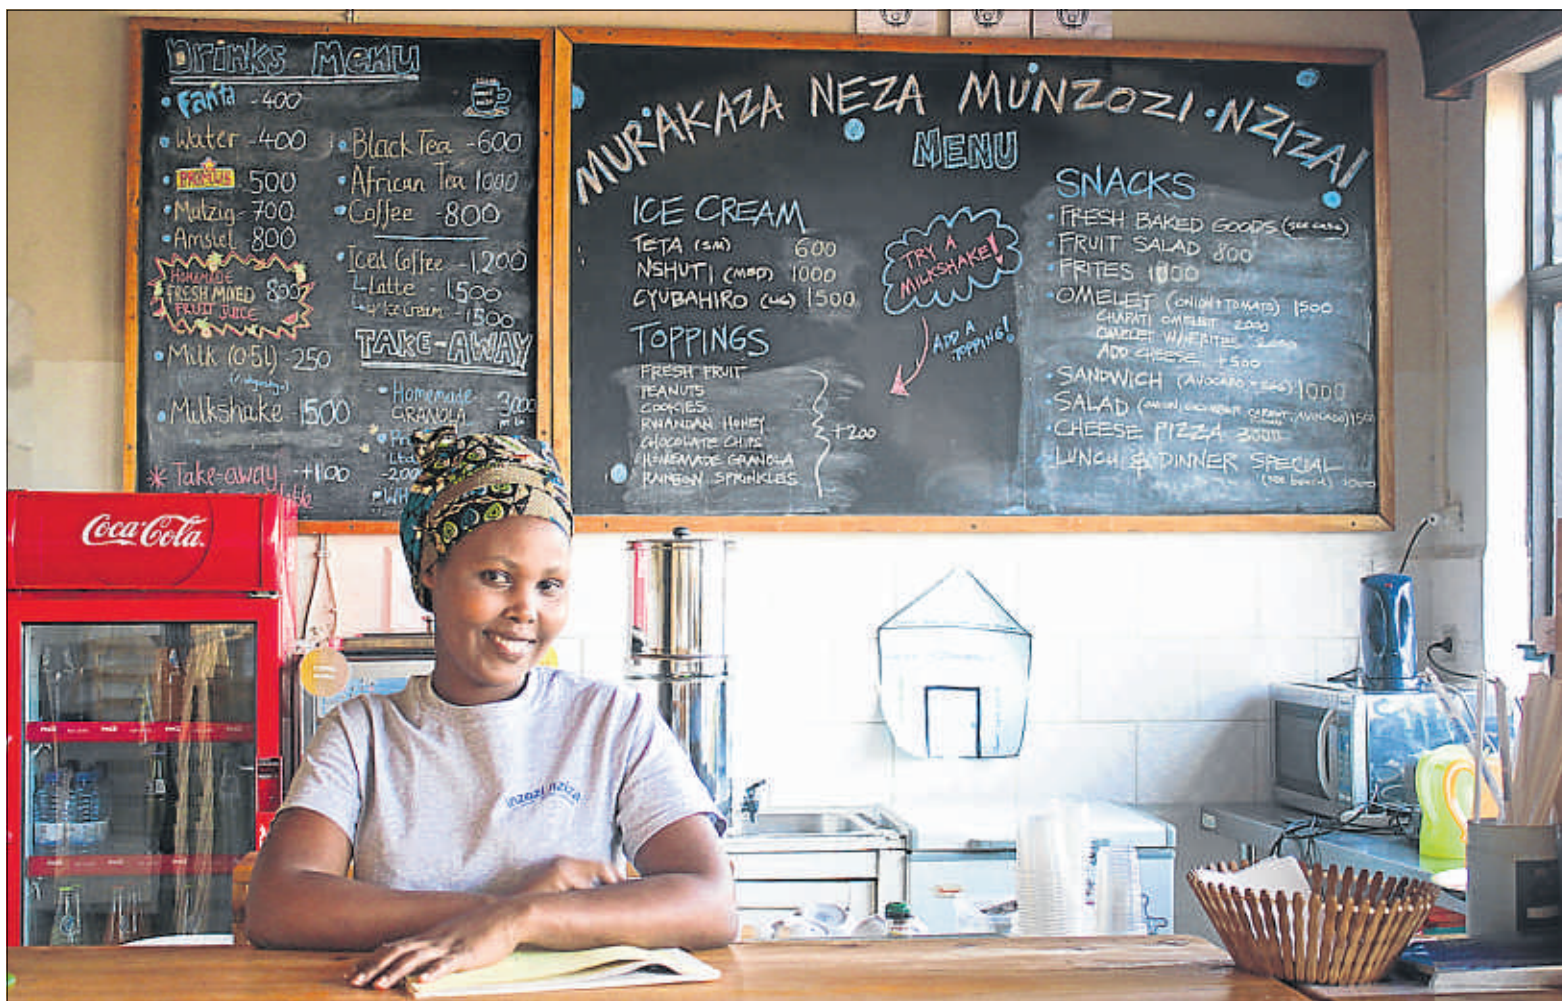 Drinks Menu
Fanta -400
Water -400
500
Mutzig -700
Amstel 800
HOMEMADE
FRESH MIXED 800
FRUIT JUICE
Milk (0.5l) -250
Milkshake 1500
* Take-away +100
Black Tea -600
African Tea 1000
Coffee -800
Iced Coffee -1,200
Latte 1,500
w/ Ice cream -1500
TAKE-AWAY
Homemade
GRANOLA - 3,000
MURAKAZA NEZA MUNZOZI NZIZA!
MENU
ICE CREAM
TETA (SM) 600
NSHUTI (MED) 1000
CYUBAHIRO (LG) 1500
TOPPINGS
FRESH FRUIT
PEANUTS
COOKIES
RWANDAN HONEY
CHOCOLATE CHIPS
HOMEMADE GRANOLA
RAINBOW SPRINKLES
+200
TRY A
MILKSHAKE!
ADD A
TOPPING!
SNACKS
FRESH BAKED GOODS (SEE CASE)
FRUIT SALAD 800
FRITES 1000
OMELET (ONION + TOMATO) 1500
CHAPATI OMELET 2000
OMELET W/FRITES 2000
ADD CHEESE +500
SANDWICH (AVOCADO + EGG) 1000
SALAD AVOCADO) 1500
CHEESE PIZZA 3000
LUNCH & DINNER SPECIAL
Coca-Cola
inzozi nziza